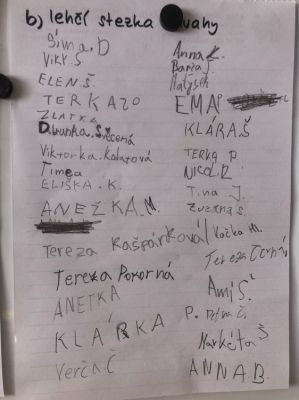 b) lehčí stezka vahy
Šíma. D
Viki. Š
ELEN Š.
TERKA ZO
ZLATKA
Viktorka. Kolatová
Timea
ELIŠKA. K.
ANEŽKA. M.
Tereza Kašpárková
Tereza Pokorná
ANETKA
KLÁRKA
Verča Č
Anna K.
Bára J.
Matýsek
EMA
KLÁRA Š
TERKA P.
NICOL R
Tina J.
Zuzana S.
Kačka M.
Tereza Černá
Ami Š
Markéta Š
ANNA B.